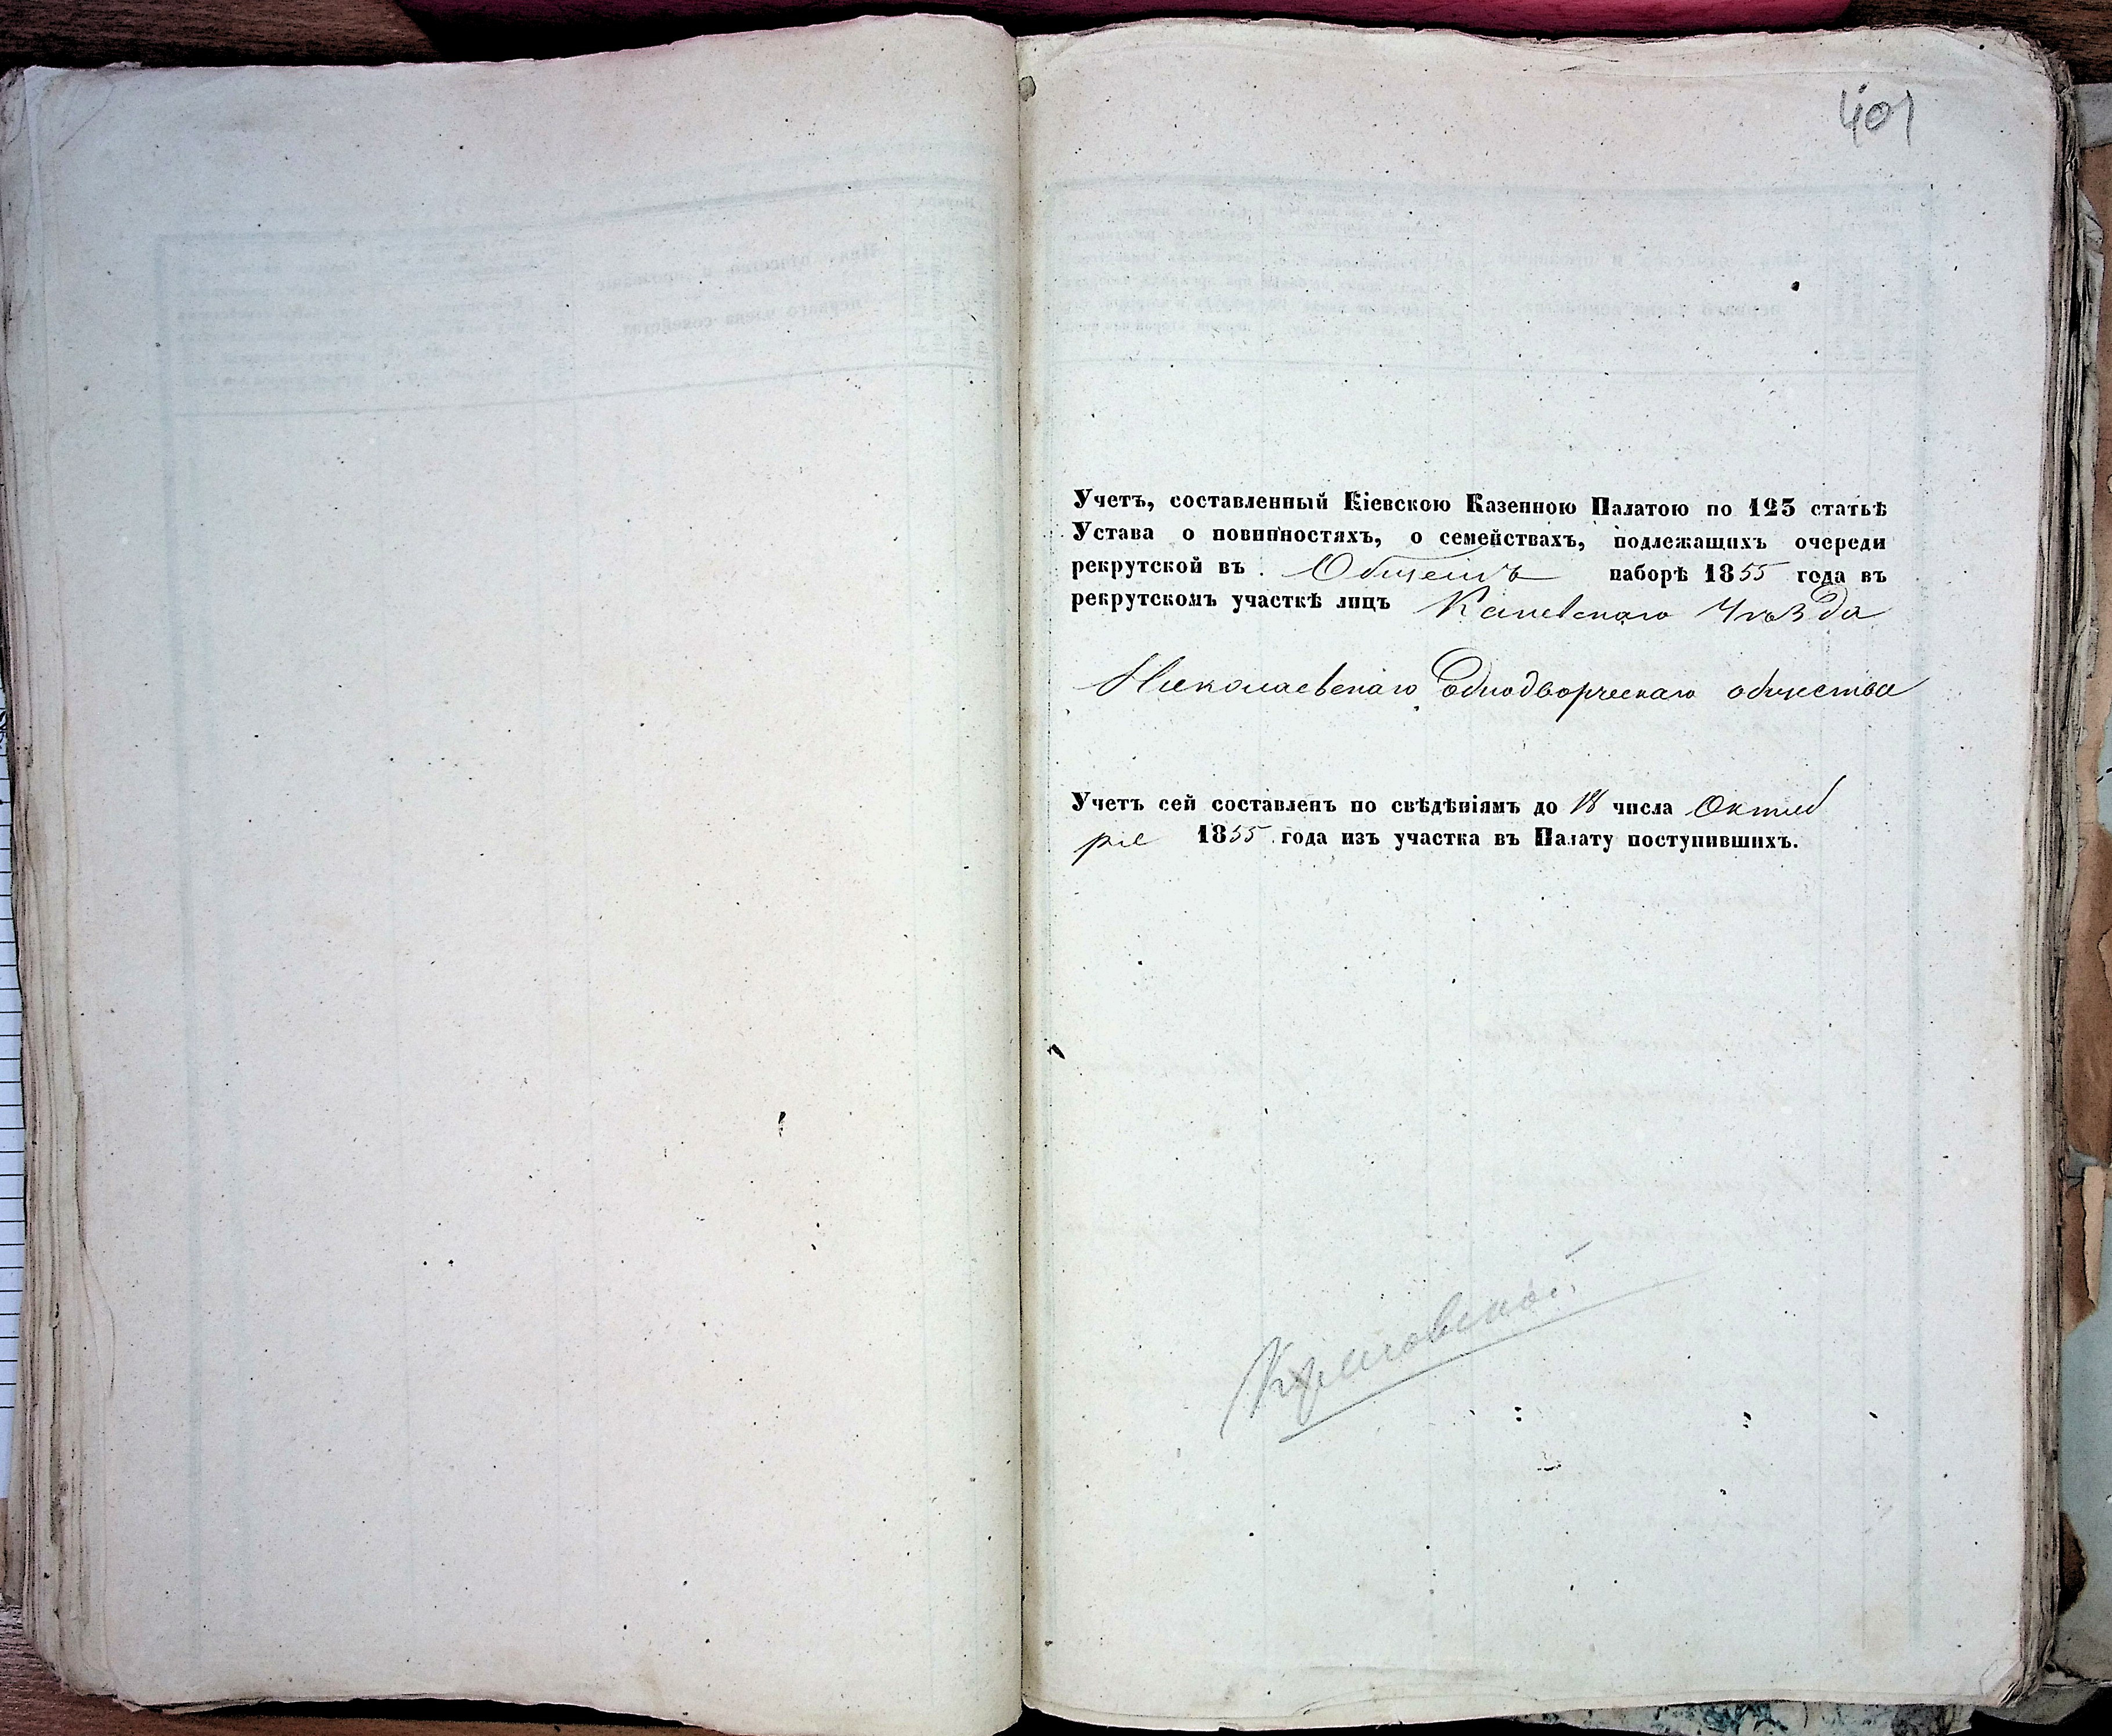 401
Учетъ, составленный Кіевскою Казенною Палатою по 123 статьѣ
Устава о повинностяхъ, о семействахъ, подлежащихъ очереди
рекрутской въ Общемъ наборѣ 1855 года въ
рекрутскомъ участкѣ лицъ Каневскаго Уѣзда
Николаевскаго однодворческаго общества
Учетъ сей составленъ по свѣдѣніямъ до 18 числа Октяб
ря 1855 года изъ участка въ Палату поступившихъ.